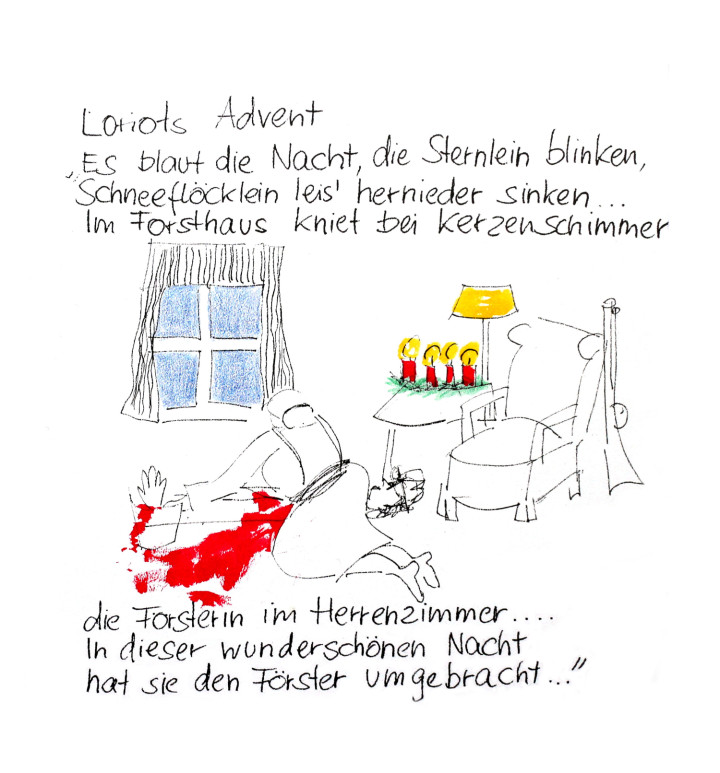 Loriots Advent
„Es blaut die Nacht, die Sternlein blinken,
Schneeflöcklein leis' hernieder sinken...
Im Forsthaus kniet bei Kerzenschimmer
die Försterin im Herrenzimmer....
In dieser wunderschönen Nacht
hat sie den Förster umgebracht..."